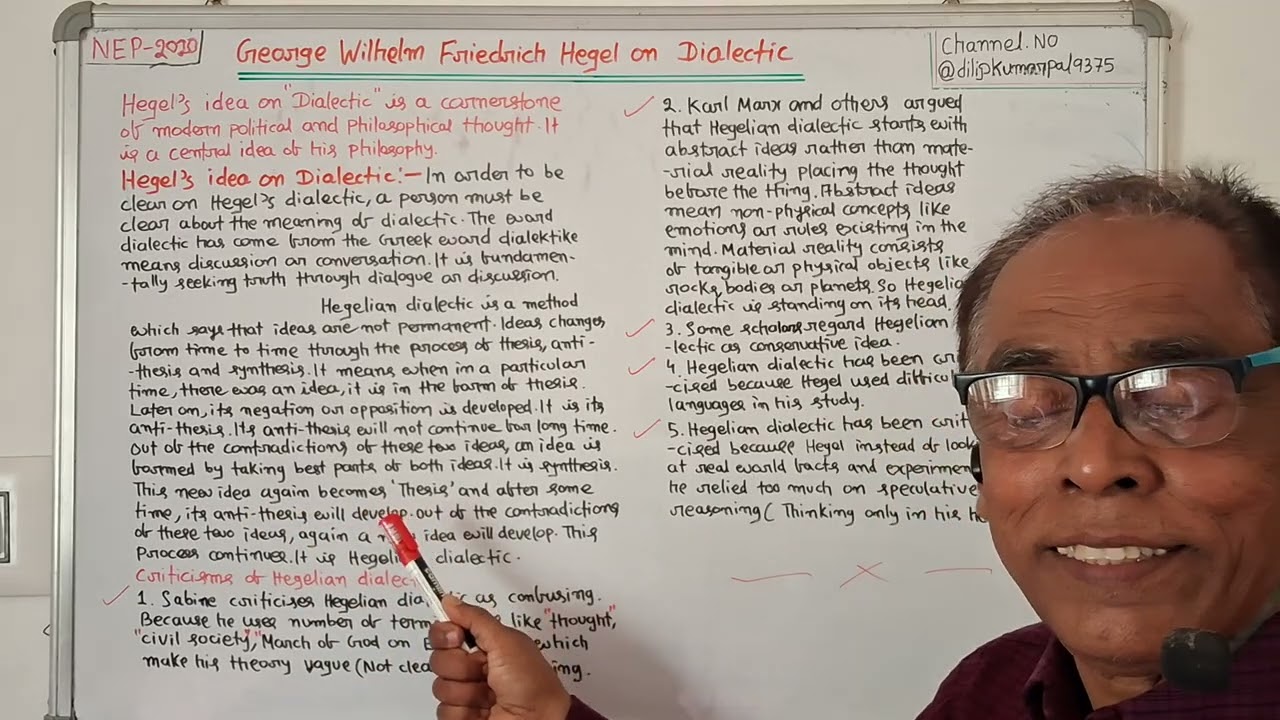 NEP-2020
George Wilhelm Friedrich Hegel on Dialectic
Channel.No
@dilipkumarpal9375
Hegel's idea on "Dialectic" is a cornerstone
of modern political and Philosophical thought. It
is a central idea of his philosophy.
Hegel's idea on Dialectic:- In order to be
clear on Hegel's dialectic, a person must be
clear about the meaning of dialectic. The word
dialectic has come from the Greek word dialektike
means discussion or conversation. It is fundamen-
-tally seeking truth through dialogue or discussion.
Hegelian dialectic is a method
which says that ideas are not permanent. Ideas changes
from time to time through the process of thesis, anti-
-thesis and synthesis. It means when in a particular
time, there was an idea, it is in the form of thesis.
Later on, its negation or opposition is developed. It is its
anti-thesis. Its anti-thesis will not continue for long time.
out of the contradictions of these two ideas, an idea is
formed by taking best parts of both ideas. It is synthesis.
This new idea again becomes 'Thesis' and after some
time, its anti-thesis will develop. out of the contradictions
of these two ideas, again a idea will develop. This
Process continues. It is dialectic.
Criticisms of Hegelian
1. Sabine criticises Hegelian as confusing.
Because he uses number of like "thought",
"civil society", "March of God on which
make his theory vague (Not
2. Karl Marx and others argued
that Hegelian dialectic starts with
abstract ideas rather than mate-
-rial reality placing the thought
before the thing. Abstract ideas
mean non-physical concepts like
emotions or rules existing in the
mind. Material reality consists
of tangible or physical objects like
rocks, bodies or planets. So
dialectic is standing on its head.
3. Some scholars regard Hegelian
-lectic as conservative idea.
4. Hegelian dialectic has been
-cised because Hegel used
languages in his study.
5. Hegelian dialectic has been
-cised because Hegel instead of
at real world facts and
he relied too much on speculative
reasoning ( Thinking only in his